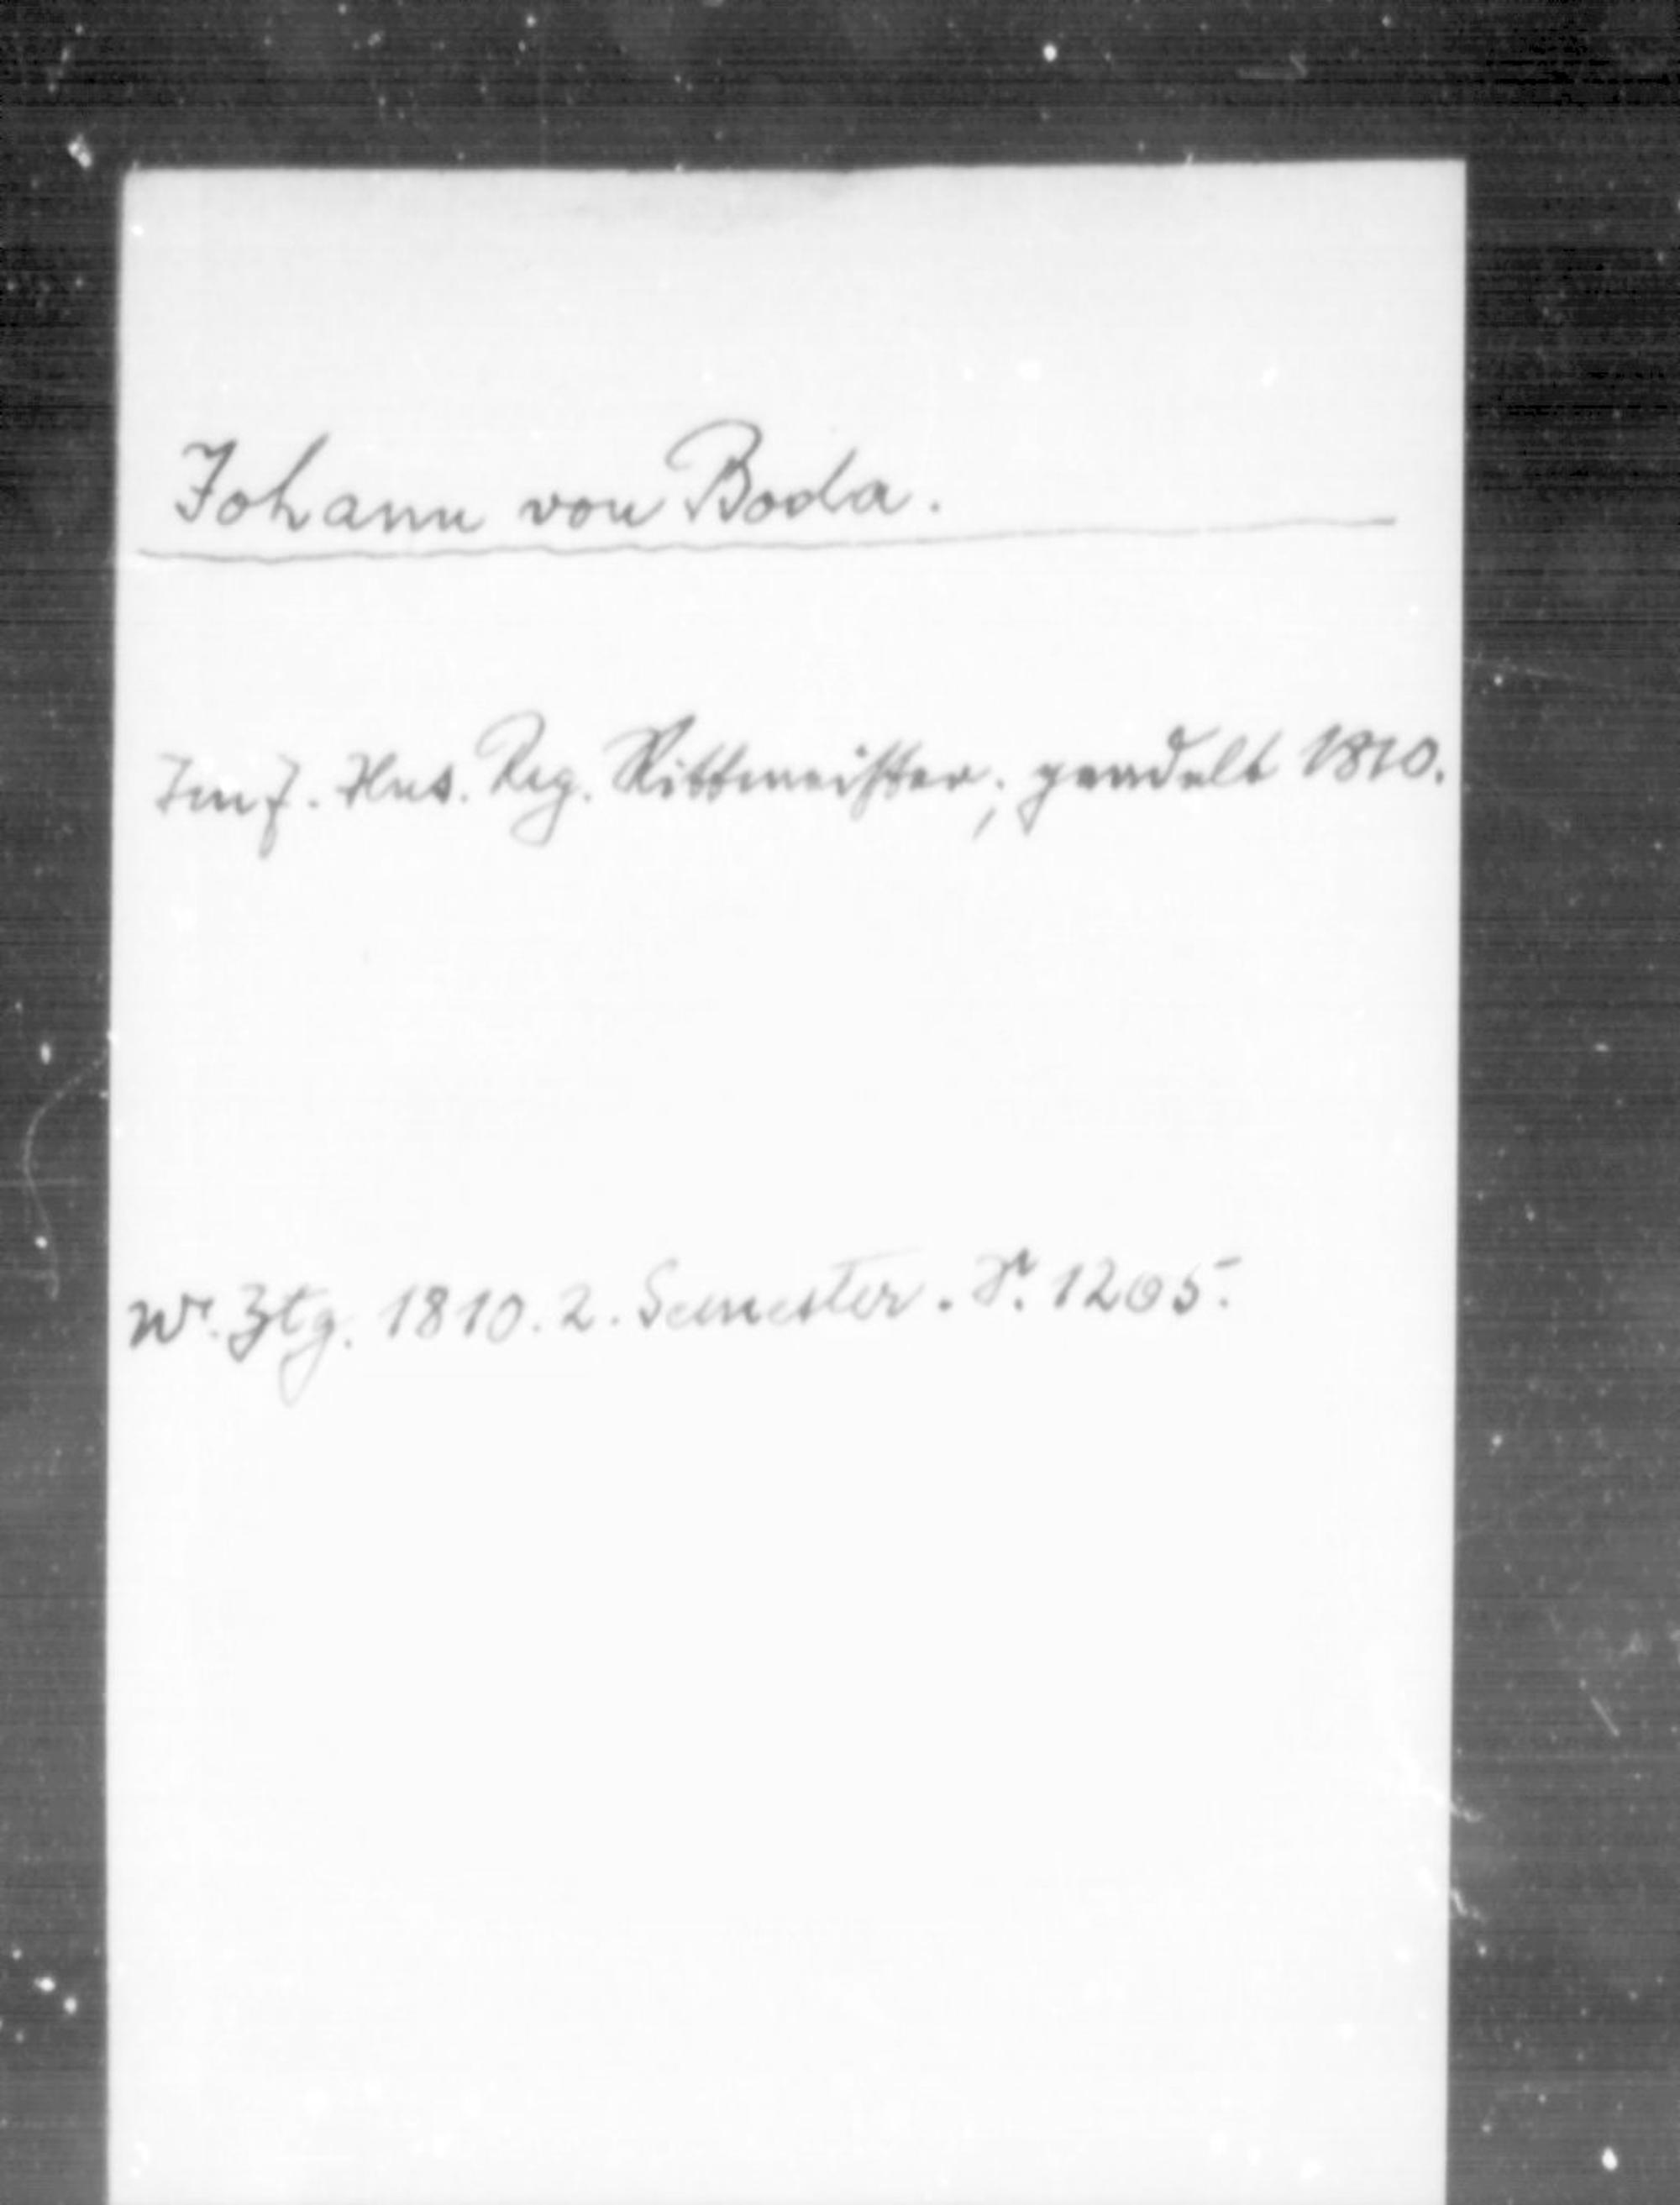 Johann von Boda.
Hus. Reg. Rittmeister; geadelt 1810.
Wr. Ztg. 1810. 2. Semester. S. 1205.